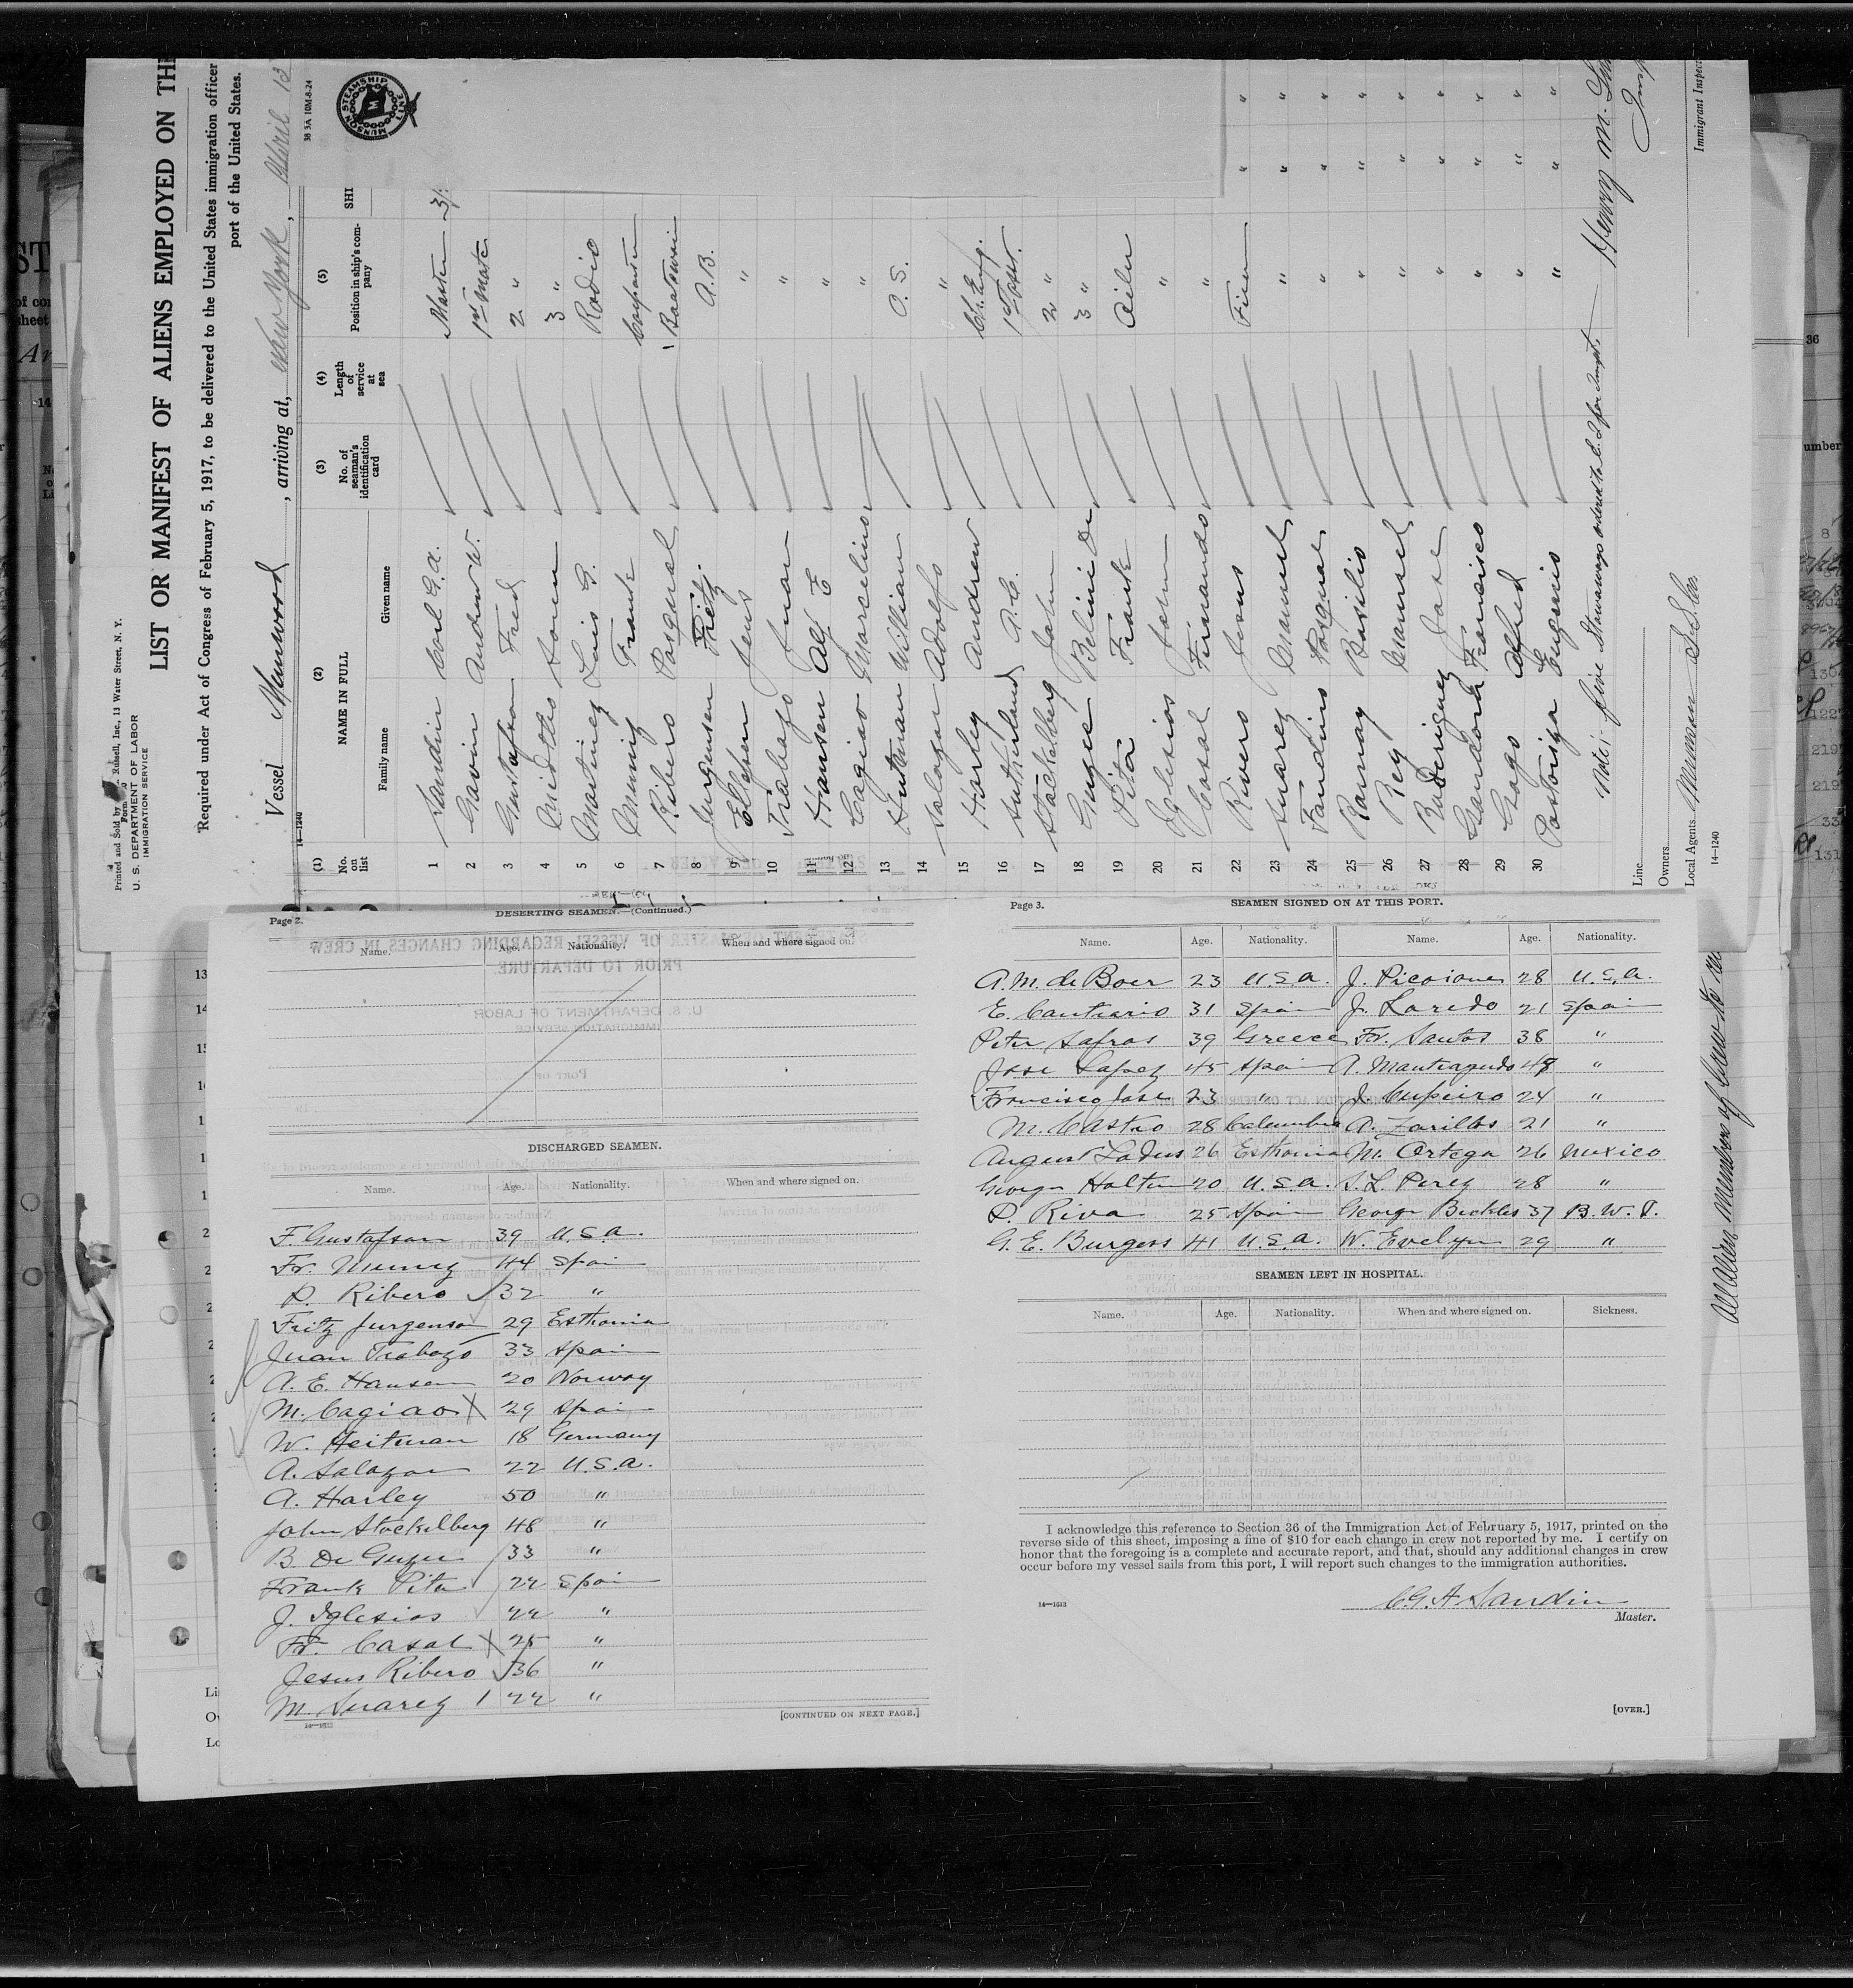 Printed and Sold by Russell, Inc., 13 Water Street, N. Y.
U. S. DEPARTMENT OF LABOR
IMMIGRATION SERVICE
LIST OR MANIFEST OF ALIENS EMPLOYED ON THE
Required under Act of Congress of February 5, 1917, to be delivered to the United States immigration officer
port of the United States.
Vessel Munwood, arriving at, New York, April 13
14—1240
38 3A 10M-8-24
MUNSON STEAMSHIP LINE
(1) No. on list
(2) NAME IN FULL
Family name Given name
(3) No. of seaman's identification card
(4) Length of service at sea
(5) Position in ship's company
SHI
1 Sandin Carl G. A. Master
2 Gavin Andrew W. 1st Mate
3 Gustafson Fred 2 "
4 3 "
5 Martinez Luis G. Radio
6 Muniz Frank Carpenter
7 Ribero Pasqual Boatswain
8 Jurgensen Fritz A.B.
9 Jens "
10 Trabazo Juan "
11 Hansen Alf E "
12 Cagiao Marcelino "
13 William O.S.
14 Salazar Adolfo "
15 Harley Andrew Ch. Eng.
16 Sutherland A.C. 1st Asst.
17 Stackelberg John 2 "
18 Belini De 3 "
19 Pita Frank Oiler
20 Iglesias John "
21 Casal Fernando "
22 Rivero Jesus Firem
23 Suarez Manuel "
24 Fandino Pasqual "
25 Basilio "
26 Rey Manuel "
27 Rodriguez Jose "
28 Gandara Francisco "
29 Gago Alfred "
30 Eugenio "
Note:- five Stowaways
Henry M.
Line
Owners
Local Agents Munson S.S. Co
Immigrant Inspect
14—1240
All Alien members of Crew to
Page 2.
DESERTING SEAMEN.—(Continued.)
Name. Age. Nationality. When and where signed on.
DISCHARGED SEAMEN.
Name. Age. Nationality. When and where signed on.
F. Gustafson 39 U.S.A.
Fr. Muniz 44 Spain
P. Ribero 32 "
Fritz Jurgenson 29 Esthonia
Juan Trabazo 33 Spain
A. E. Hansen 20 Norway
M. Cagiao 29 Spain
W. Heitman 18 Germany
A. Salazar 22 U.S.A.
A. Harley 50 "
John Stackelberg 48 "
B. De 33 "
Frank Pita 22 Spain
J. Iglesias 22 "
Fr. Casal 25 "
Jesus Ribero 36 "
M. Suarez 22 "
14—1613
[CONTINUED ON NEXT PAGE.]
Page 3.
SEAMEN SIGNED ON AT THIS PORT.
Name. Age. Nationality. Name. Age. Nationality.
A. M. de Boer 23 U.S.A. J. 28 U.S.A.
E. 31 Spain J. Laredo 21 Spain
Peter Safros 39 Greece Fr. Santos 38 "
Jose Lopez 45 Spain A. "
Francisco Jose 23 " J. Cupeiro 24 "
M. Castro 28 Columbia A. 21 "
August 26 Esthonia M. Ortega 26 Mexico
George 20 U.S.A. S. L. Perez 28 "
P. Riva 25 Spain George Beckles 37 B.W.I.
G. E. Burgess 41 U.S.A. W. Evelyn 29 "
SEAMEN LEFT IN HOSPITAL.
Name. Age. Nationality. When and where signed on. Sickness.
I acknowledge this reference to Section 36 of the Immigration Act of February 5, 1917, printed on the
reverse side of this sheet, imposing a fine of $10 for each change in crew not reported by me. I certify on
honor that the foregoing is a complete and accurate report, and that, should any additional changes in crew
occur before my vessel sails from this port, I will report such changes to the immigration authorities.
C. G. A Sandin
Master.
14—1613
[OVER.]